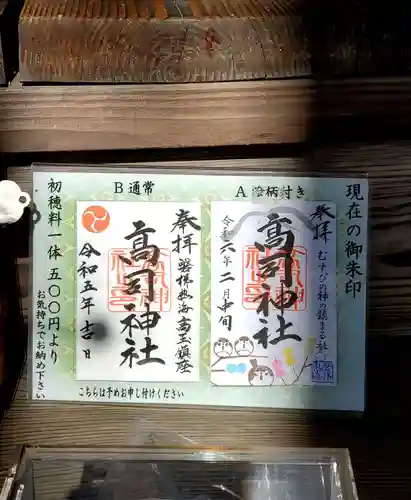 現在の御朱印
A 絵柄付き
奉拝
むすびの神の鎮まる社
高司神社
令和六年二月中旬
B 通常
奉拝
磐梯熱海高玉鎮座
高司神社
令和五年吉日
初穂料一体五〇〇円より
お気持ちでお納め下さい
こちらは予めお申し付けください